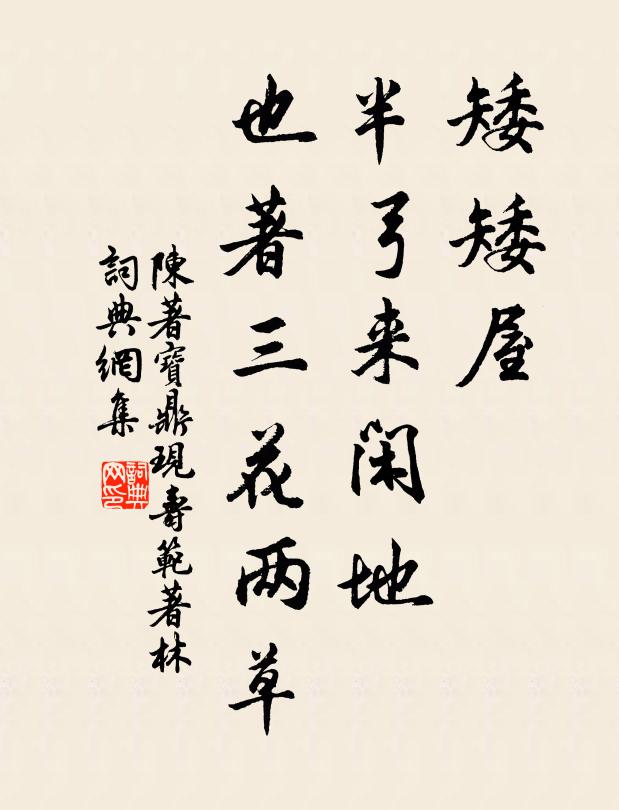 矮矮屋
半弓来闲地
也著三花两草
陳著寶鼎現壽範著林
詞典網集
詞典网印